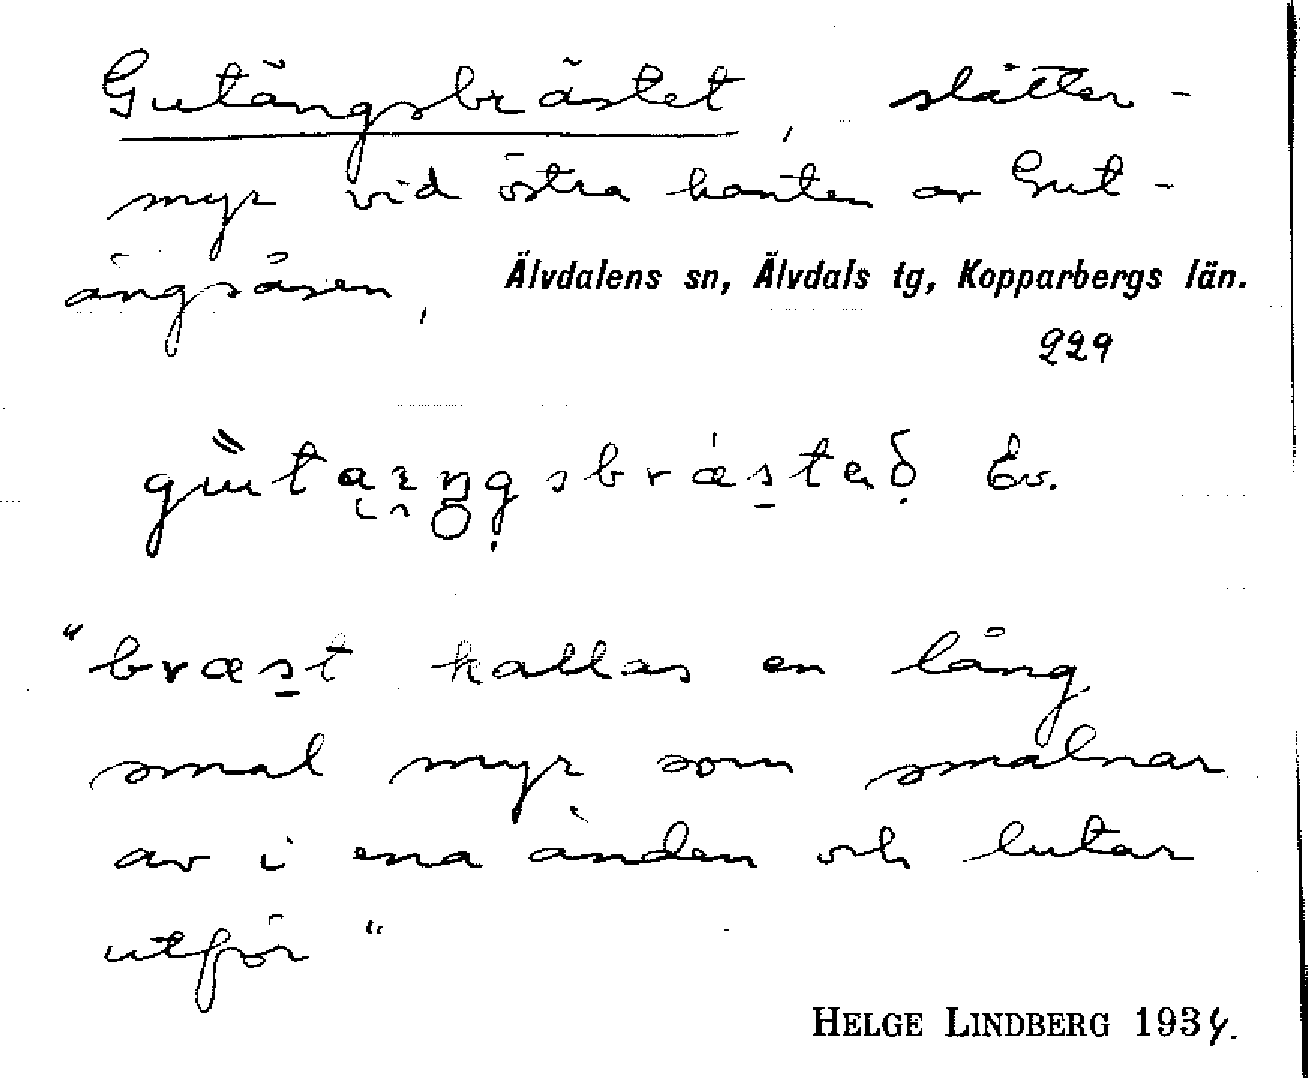 Gutängsbrästet, slåtter-
myr vid östra kanten av Gut-
ängsåsen,
Älvdalens sn, Älvdals tg, Kopparbergs län.
229
Ev.
"bræst kallas en lång
smal myr som smalnar
av i ena änden och lutar
utför"
HELGE LINDBERG 1934.